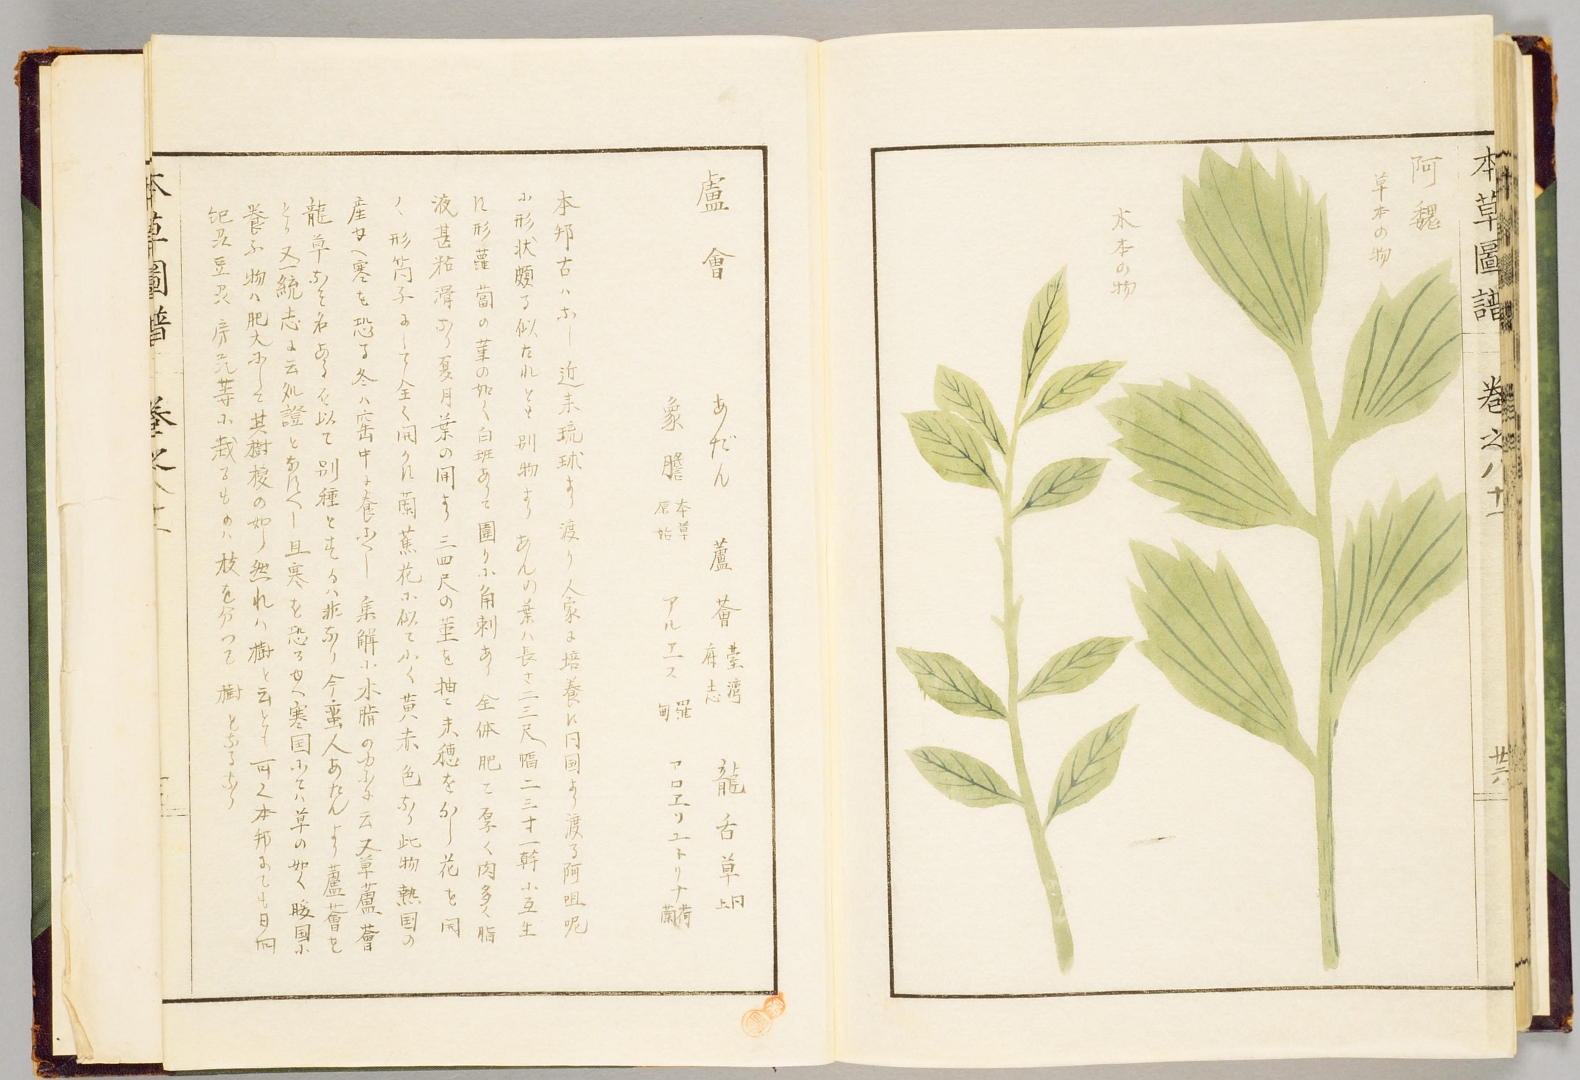 本草圖譜 巻之八十一 廿六
阿魏
草本の物
木本の物
盧會
あだん 蘆薈 臺湾府志 龍舌草 同上
象膽 本草原始 アルエス 羅甸 アロエリユトリナ 荷蘭
本邦古ハなし近来琉球より渡り人家に培養に同国より渡る阿咀呢
に形状頗る似たれとも別物なり あんの葉ハ長さ二三尺幅二三寸一幹に互生
に形蘿蔔の葉の如く白斑ありて圍りに角刺あり全体肥て厚く肉多く脂
液甚粘滑なり夏月葉の間より三四尺の莖を抽て末穂をなし花を開
く形筒子にして全く開かに萱蕉花に似て小く黄赤色なり此物熱国の
産ゆへ寒を恐る冬ハ窖中に養ふへし 集解に木脂の 云又草蘆薈
龍草なと名あるを以て別種とするハ非なり今蛮人あたんより蘆薈を
とり又一統志に云 證となすへし且寒を恐るゆへ寒国にてハ草の如く暖国に
養ふ物ハ肥大にして其樹椶の如し然れハ樹と云とも可也本邦にても日向
に栽るものハ枝を分つて樹となるなり
本草圖譜 巻之八十一